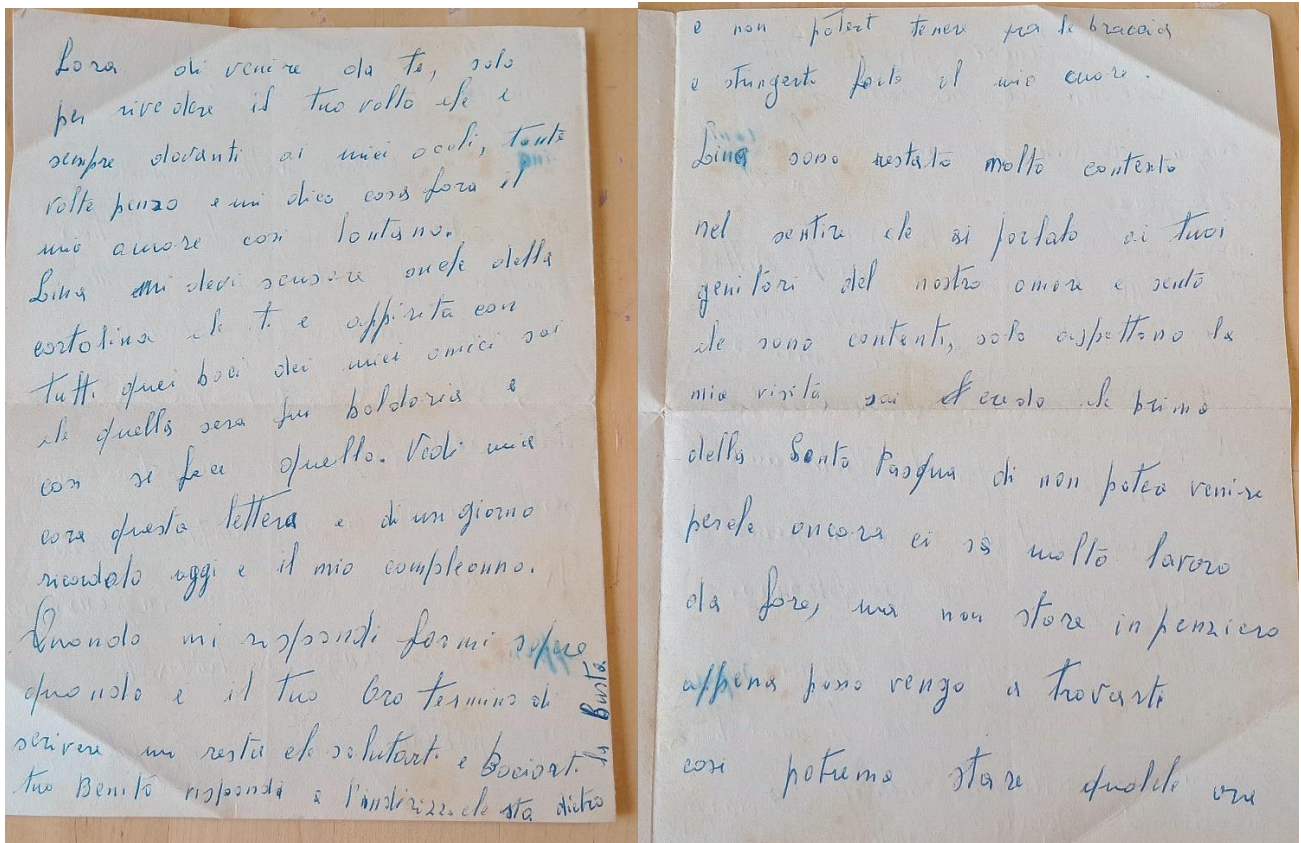 Lora di venire da te, solo
per rivedere il tuo volto che e
sempre davanti ai miei occhi, tante
volte penzo e mi dico cosa fara il
mio amore cosi lontano.
Lina mi devi scusare anche della
cartolina che ti e
tutti quei baci dei miei amici sai
che quella sera fu baldoria e
cosi si fece quello. Vedi mia
cara questa lettera e di un giorno
ricordato oggi e il mio compleanno.
Quando mi rispondi farmi sapere
quando e il tuo Ora termino di
scrivere mi resta che salutarti e Baciarti
tuo Benito rispondi a l'indirizzo che sta dietro
la Busta
e non poterti tenere fra le braccia
e stringerti forte al mio cuore.
Lina sono restato molto contento
nel sentire che ai parlato ai tuoi
genitori del nostro amore e sento
che sono contenti, solo aspettano la
mia visita, sai credo che prima
della Santa Pasqua di non poter venire
perche ancora ci sta molto lavoro
da fare, ma non stare in penziero
appena posso vengo a trovarti
cosi potremo stare qualche ora